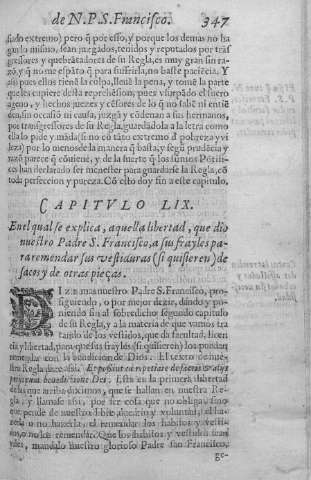 de N. P. S. Francisco. 347
siado extremo) pero q̃ por esso, y porque los demas no ha
gan lo mismo, sean juzgados, tenidos y reputados por trãs
gressores y quebrãtadores de su Regla, es muy gran sin ra-
zõ, y q̃ no me espãto q̃ para suffrirla, no baste paciẽcia. Y
assi pues ellos tienẽ la culpa, lleuẽ la pena, y tomẽ la parte
que les cupiere desta reprehẽsion, pues vsurpãdo el fuero
ageno, y hechos juezes y cẽsores de lo q̃ no sabẽ ni entiẽ
den, sin occasiõ ni causa, juzgã y cõdenan a sus hermanos,
por transgressores de su Regla, guardãdola a la letra como
ella lo pide y mãda (si no cõ tãto extremo d̃ pobreza y vi-
leza) por lo menos de la manera q̃ basta, y segũ prudẽcia y
razõ parece q̃ cõuiene, y de la suerte q̃ los sũmos Põtifi-
ces han declarado ser menester para guardarse la Regla, cõ
toda perfeccion y pureza. Cõ esto doy fin a este capitulo.
CAPITVLO LIX.
En el qual se explica, aquella libertad, que dio
nuestro Padre S. Francisco, a sus frayles pa-
ra remendar sus vestiduras (si quisieren) de
sacos y de otras pieças.
DIze mas nuestro Padre S. Francisco, pro-
siguiendo, o por mejor dezir, dando y po-
niendo fin al sobredicho segundo capitulo
de su Regla, y a la materia de que vamos tra
tando de los vestidos, que da facultad, licen
cia y libertad, para que sus frayles (si quisieren) los puedan
remendar con la bendicion de Dios. El texto de nue-
stra Regla dize assi. Et possint ea repetiare de saccis & alijs
pecijs cum benedictione Dei. Esta es la primera libertad
de las que arriba diximos, que se hallan en nuestra Re-
gla, y llamase assi, por ser cosa que no obliga, sino
que pende de nuestro libre aluedrio y voluntad, el ha-
zerla o no hazerla, el remendar los habitos y vesti-
dos, o no los remendar. Que los habitos y vestidos sean
viles, mandalo nuestro glorioso Padre san Francisco,
ge-